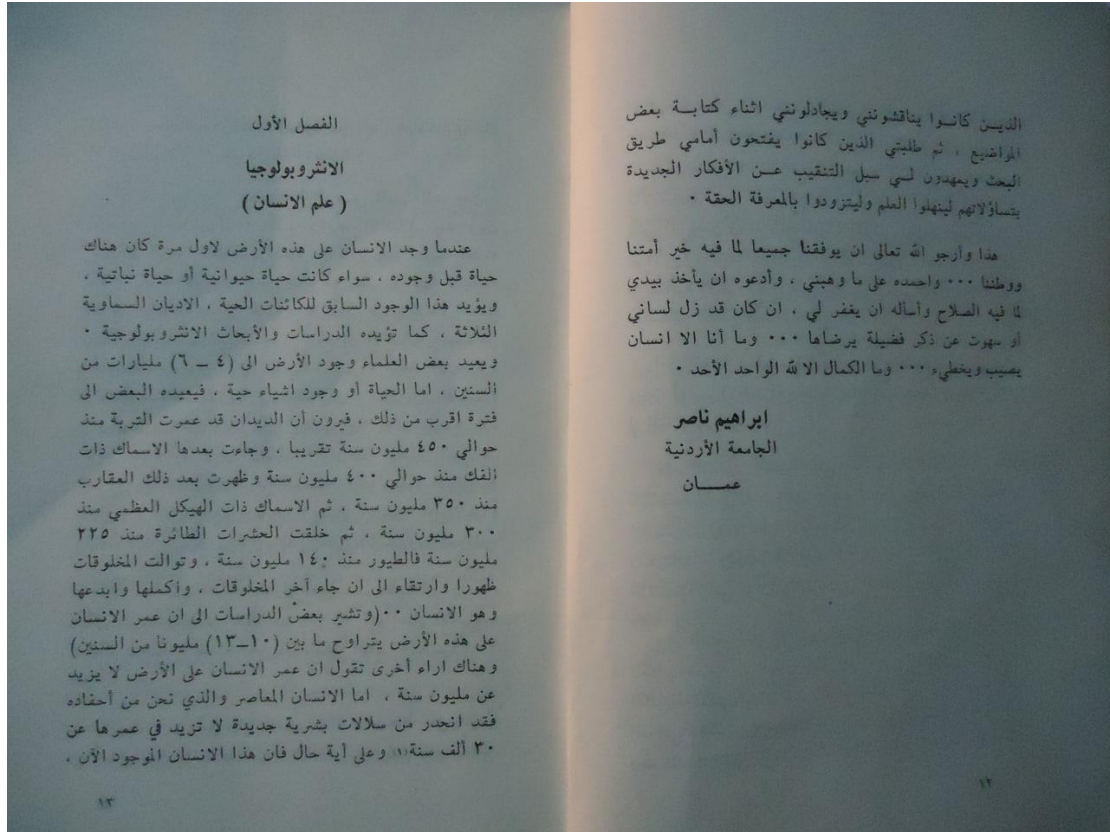 الذيــن كانــوا يناقشونني ويجادلونني اثناء كتابــة بعض
المواضيع ، ثم طلبتي الذين كانوا يفتحون أمامي طريق
البحث ويمهدون لــي سبل التنقيب عــن الأفكار الجديدة
بتساؤلاتهم لينهلوا العلم وليتزودوا بالمعرفة الحقة ٠
هذا وأرجو الله تعالى ان يوفقنا جميعا لما فيه خير أمتنا
ووطننا ٠٠٠ واحمده على ما وهبني ، وأدعوه ان يأخذ بيدي
لما فيه الصلاح وأسأله ان يغفر لي ، ان كان قد زل لساني
أو سهوت عن ذكر فضيلة يرضاها ٠٠٠ وما أنا الا انسان
يصيب ويخطيء ٠٠٠ وما الكمال الا لله الواحد الأحد ٠
ابراهيم ناصر
الجامعة الأردنية
عمـــان
١٢
الفصل الأول
الانثروبولوجيا
( علم الانسان )
عندما وجد الانسان على هذه الأرض لاول مرة كان هناك
حياة قبل وجوده ، سواء كانت حياة حيوانية أو حياة نباتية ،
ويؤيد هذا الوجود السابق للكائنات الحية ، الاديان السماوية
الثلاثة ، كما تؤيده الدراسات والأبحاث الانثروبولوجية ٠
ويعيد بعض العلماء وجود الأرض الى (٤ – ٦) مليارات من
السنين ، اما الحياة أو وجود اشياء حية ، فيعيده البعض الى
فترة اقرب من ذلك ، فيرون أن الديدان قد عمرت التربة منذ
حوالي ٤٥٠ مليون سنة تقريبا ، وجاءت بعدها الاسماك ذات
الفك منذ حوالي ٤٠٠ مليون سنة وظهرت بعد ذلك العقارب
منذ ٣٥٠ مليون سنة ، ثم الاسماك ذات الهيكل العظمي منذ
٣٠٠ مليون سنة ، ثم خلقت الحشرات الطائرة منذ ٢٢٥
مليون سنة فالطيور منذ ١٤٠ مليون سنة ، وتوالت المخلوقات
ظهورا وارتقاء الى ان جاء آخر المخلوقات ، وأكملها وابدعها
وهو الانسان ٠٠(وتشير بعض الدراسات الى ان عمر الانسان
على هذه الأرض يتراوح ما بين (١٠–١٣) مليونا من السنين)
وهناك اراء أخرى تقول ان عمر الانسان على الأرض لا يزيد
عن مليون سنة ، اما الانسان المعاصر والذي نحن من أحفاده
فقد انحدر من سلالات بشرية جديدة لا تزيد في عمرها عن
٣٠ ألف سنة(١) وعلى أية حال فان هذا الانسان الموجود الآن ،
١٣